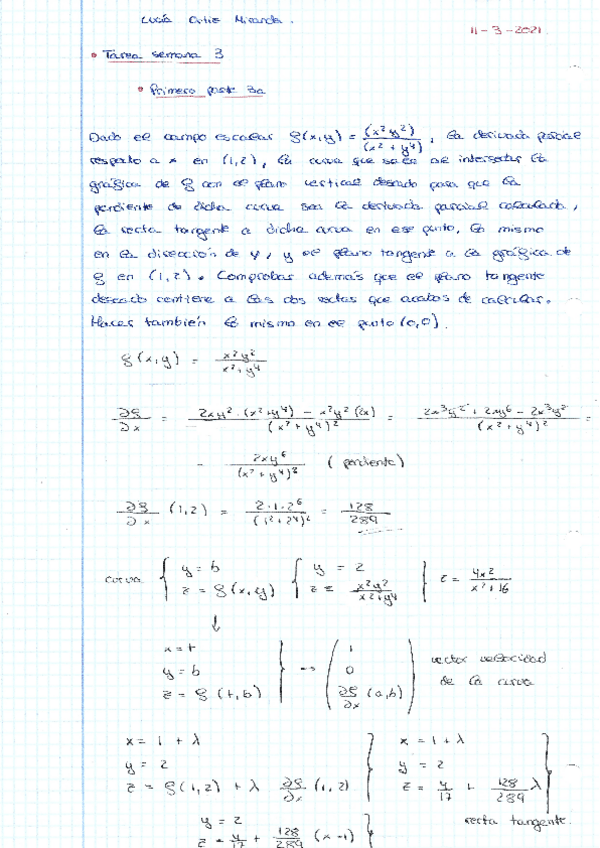 Lucía Ortiz Miranda.
11-3-2021
• Tarea semana 3
• Primera parte 3a
Dado el campo escalar f(x,y) = (x²y²)/(x² + y⁴), la derivada parcial
respecto a x en (1,2), la curva que sale al intersectar la
gráfica de f con el plano vertical deseado para que la
pendiente de dicha curva sea la derivada parcial calculada,
la recta tangente a dicha curva en ese punto, lo mismo
en la dirección de y, y el plano tangente a la gráfica de
f en (1,2). Comprobar además que el plano tangente
deseado contiene a las dos rectas que acabas de calcular.
Haces también lo mismo en el punto (0,0).
f(x,y) = x²y²/(x²+y⁴)
∂f/∂x = (2xy²·(x²+y⁴) − x²y²(2x))/(x²+y⁴)² = (2x³y² + 2xy⁶ − 2x³y²)/(x²+y⁴)² =
= 2xy⁶/(x²+y⁴)² (pendiente)
∂f/∂x (1,2) = 2·1·2⁶/(1²+2⁴)² = 128/289
curva { y = b z = f(x,y) { y = 2 z = x²y²/(x²+y⁴) } z = 4x²/(x²+16)
↓
x = t
y = b
z = f(t,b) } → ( 1 0 ∂f/∂x (a,b) ) vector velocidad
de la curva
x = 1 + λ
y = 2
z = f(1,2) + λ ∂f/∂x (1,2) } x = 1+λ y = 2 z = 4/17 + 128/289 λ } →
recta tangente.
y = 2
z = 4/17 + 128/289 (x−1) }